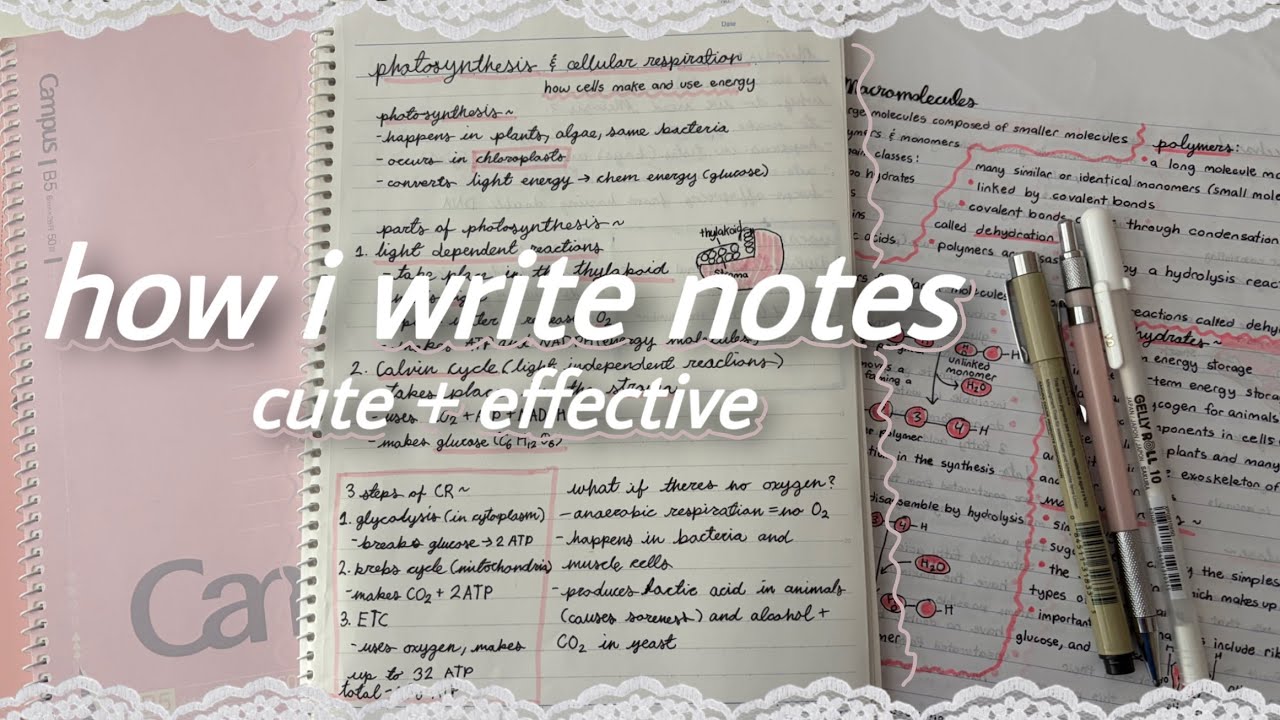 how i write notes
cute + effective
Campus | B5
Date
photosynthesis & cellular respiration
how cells make and use energy
photosynthesis ~
-happens in plants, algae, some bacteria
-occurs in chloroplasts
-converts light energy → chem energy (glucose)
parts of photosynthesis ~
1. light dependent reactions
-take place in the thylakoid
thylakoid
stroma
O2
-makes ATP and NADPH (energy molecules)
2. Calvin cycle (light independent reactions)
-takes place in the stroma
-uses CO2 + ATP + NADPH
-makes glucose (C6H12O6)
3 steps of CR ~
1. glycolysis (in cytoplasm)
-breaks glucose → 2 ATP
2. krebs cycle (mitochondria)
-makes CO2 + 2ATP
3. ETC
-uses oxygen, makes
up to 32 ATP
total
what if theres no oxygen?
-anaerobic respiration = no O2
-happens in bacteria and
muscle cells
-produces lactic acid in animals
(causes soreness) and alcohol +
CO2 in yeast
Macromolecules
large molecules composed of smaller molecules
polymers & monomers
main classes:
hydrates
acids
polymers:
• a long molecule
many similar or identical monomers (small
• linked by covalent bonds
• covalent bonds through condensation
called dehydration
by a hydrolysis
reactions called
unlinked
monomer
H2O
3
4
H
polymer
in the synthesis
disassemble by hydrolysis
4
H
H2O
H
hydrates ~
energy storage
-term energy
for animals
components in cells
plants and many
exoskeleton of
the simplest
which makes up
types of
• important
glucose, and
include
GELLY ROLL 10